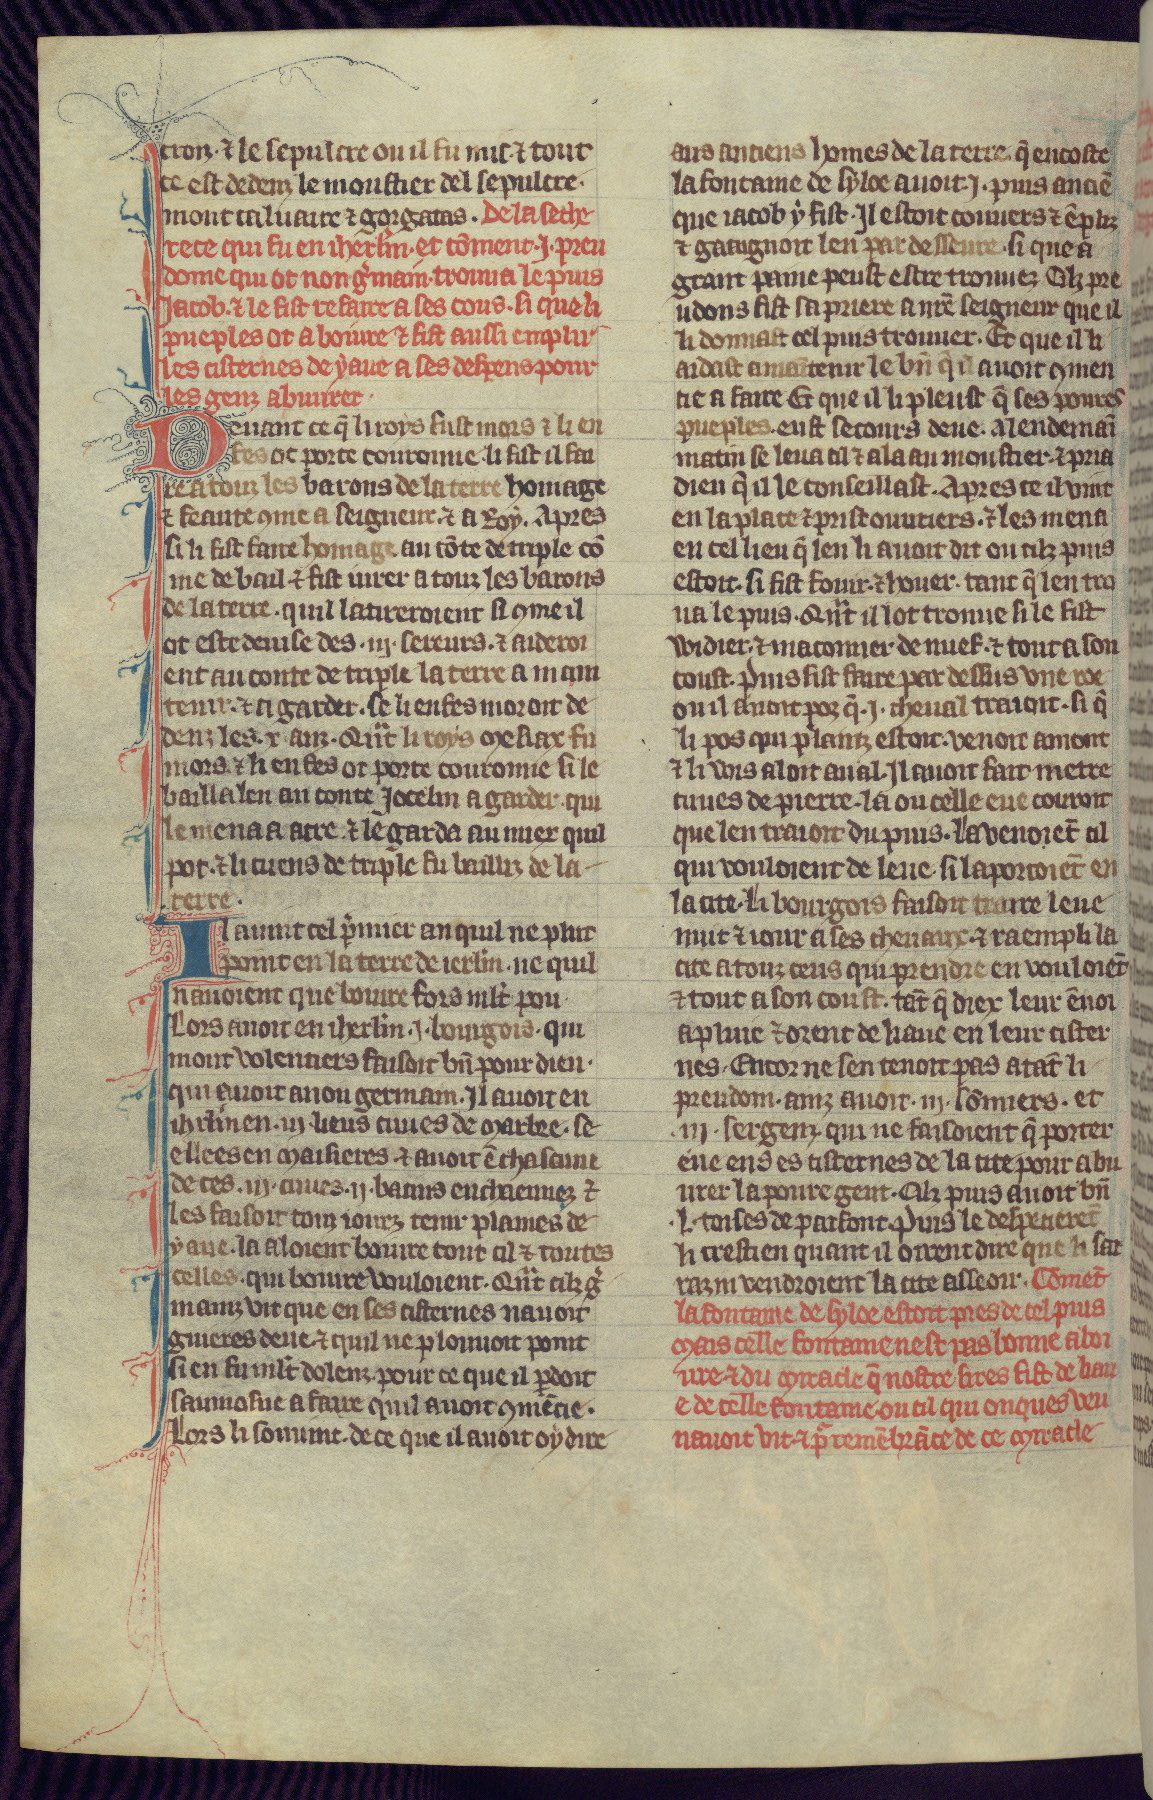 cron· ⁊ le sepulcre ou il fu mis· ⁊ tout
ce est dedenz le moustier del sepulcre·
mont caluaire ⁊ gorgatas· De la seche
rece qui fu en iherl̃m· et cõment ·J· preu
dome qui ot non g̃main· trouua le puis
Jacob· ⁊ le fist refaire a ses cous· si que li
pueples ot a boiure ⁊ fist aussi emplir
les cisternes de yaue a ses despens pour
les genz abuurer·
Deuant ce q̃ li roys fust mors ⁊ li en
fes ot porte couronne· li fist il fai
re a touz les barons de la terre homage
⁊ feaute ꝯme a seigneur· ⁊ a roy· Apres
si li fist faire homage au cõte de triple cõ
me de bail· ⁊ fist iurer a touz les barons
de la terre· quil latireroient si ꝯme il
ot este deuise des ·iij· sereurs· ⁊ aideroi
ent au conte de triple la terre a main
tenir· ⁊ a garder· se li enfes moroit de
denz les ·x· anz· Qũt li roys mesiax fu
mors· ⁊ li enfes ot porte couronne si le
bailla len au conte Jocelin a garder· qui
le mena a acre· ⁊ le garda au miex quil
pot· ⁊ li cuens de triple fu bailliz de la
terre·
Il auint cel p̃mier an quil ne plut
point en la terre de ierl̃m· ne quil
nauoient que boiure fors ml̃t pou·
Lors auoit en iherl̃m ·J· bourgois· qui
mout volentiers faisoit bñ pour dieu·
qui auoit a non germain· Jl auoit en
ihrl̃m en ·iij· lieus cuues de marbre· se
ellees en maisieres· ⁊ auoit ẽ chascune
de ces ·iij· cuues ·ij· bacins enchaennez ⁊
les faisoit touz iourz tenir plaines de
yaue· la aloient boiure tout cil ⁊ toutes
celles· qui boiure vouloient· Qũt cilz g̃
mainz vit que en ses cisternes nauoit
guieres deue· ⁊ quil ne plouuoit point
si en fu ml̃t dolenz· pour ce que il p̱doit
saumosne a faire quil auoit ꝯmẽcie·
Lors li souuint· de ce que il auoit oy dire
aus anciens homes de la terre· q̃ encoste
la fontaine de syloe auoit ·J· puis anciẽ
que iacob y fist· Jl estoit couuers ⁊ ẽpliz
⁊ gaaignoit len par desseure· si que a
grant paine peust estre trouuez· Cilz pre
udons fist sa priere a nr̃e seigneur que il
li donnast cel puis trouuer· Et que il li
aidast a maintenir le bñ q̃ il auoit ꝯmen
cie a faire· Et que il li pleust q̃ ses poures
pueples· eust secours deue· A lendemaĩ
matin se leua cil ⁊ ala au moustier· ⁊ pria
dieu q̃ il le conseillast· Apres ce il vint
en la place ⁊ prist ouuriers· ⁊ les mena
en cel lieu q̃ len li auoit dit ou cilz puis
estoit· si fist fouir· ⁊ houer· tant q̃ len tro
ua le puis· Qũt il lot trouue si le fist
widier· ⁊ maconner de nuef· ⁊ tout a son
coust· Puis fist faire par dessus vne roe
ou il auoit poz q̃ ·J· cheual traioit· si q̃
li pos qui plainz estoit· venoit amont
⁊ li wis aloit aual· Jl auoit fait metre
cuues de pierre· la ou celle eue couroit
que len traioit du puis· La venoiẽt cil
qui vouloient de leue· si la portoiẽt en
la cite· Li bourgois faisoit traire leue
nuit ⁊ iour a ses cheuaux· ⁊ raempli la
cite a touz ceus qui prendre en vouloiẽt
⁊ tout a son coust· tãt q̃ diex leur ẽuoi
a pluie ⁊ orent de liaue en leur cister
nes· Encor ne sen tenoit pas a tãt li
preudom· ainz auoit ·iij· sõmiers· et
·iij· sergenz· qui ne faisoient q̃ porter
eue en ses cisternes de la cite pour abu
urer la poure gent· Cilz puis auoit bñ
·L· toises de parfont· Puis le despecierẽt
li crestien quant il oirent dire que li sar
razin vendroient la cite asseoir· Cõmẽt
la fontaine de syloe estoit pres de cel puis
mais celle fontaine nest pas bonne a boi
ure· ⁊ du myracle q̃ nostre sires fist de liau
e de celle fontaine· ou cil qui onques veu
nauoit vit· ⁊ p̱ remẽbrãce de ce myracle